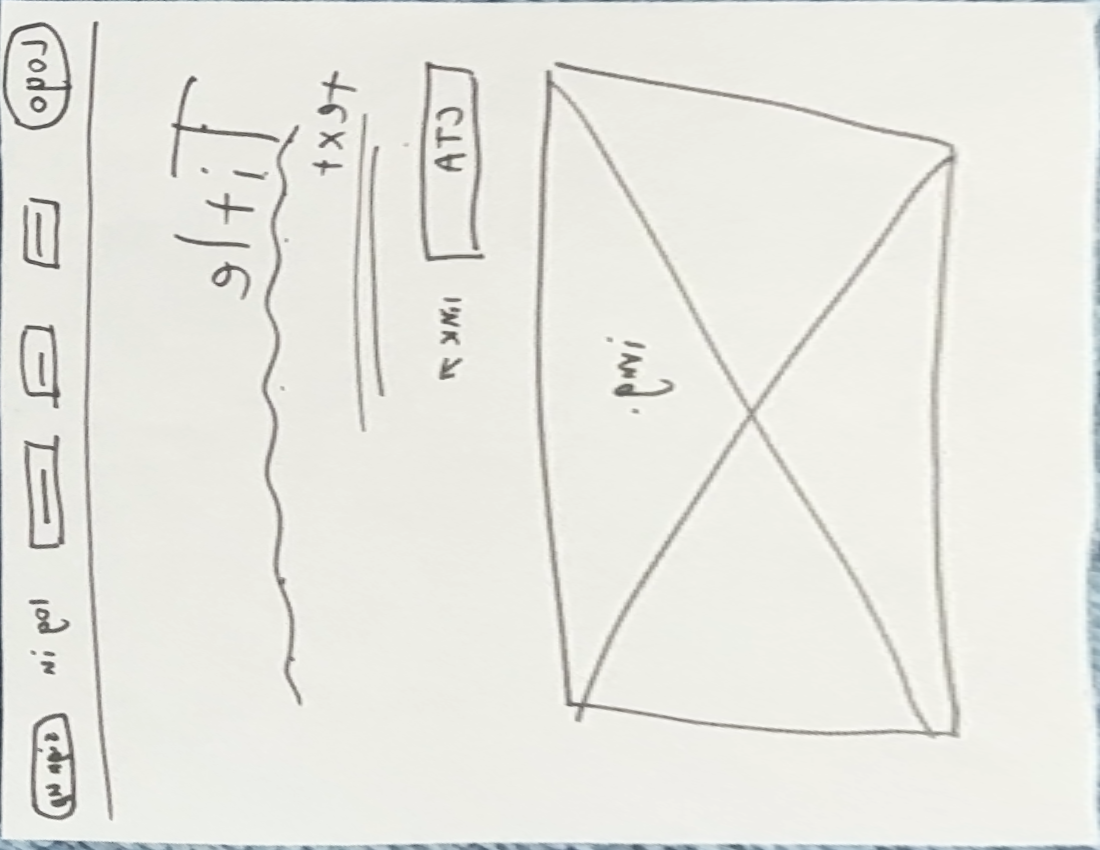 logo log in sign up
Title
text
CTA link ↗
img.